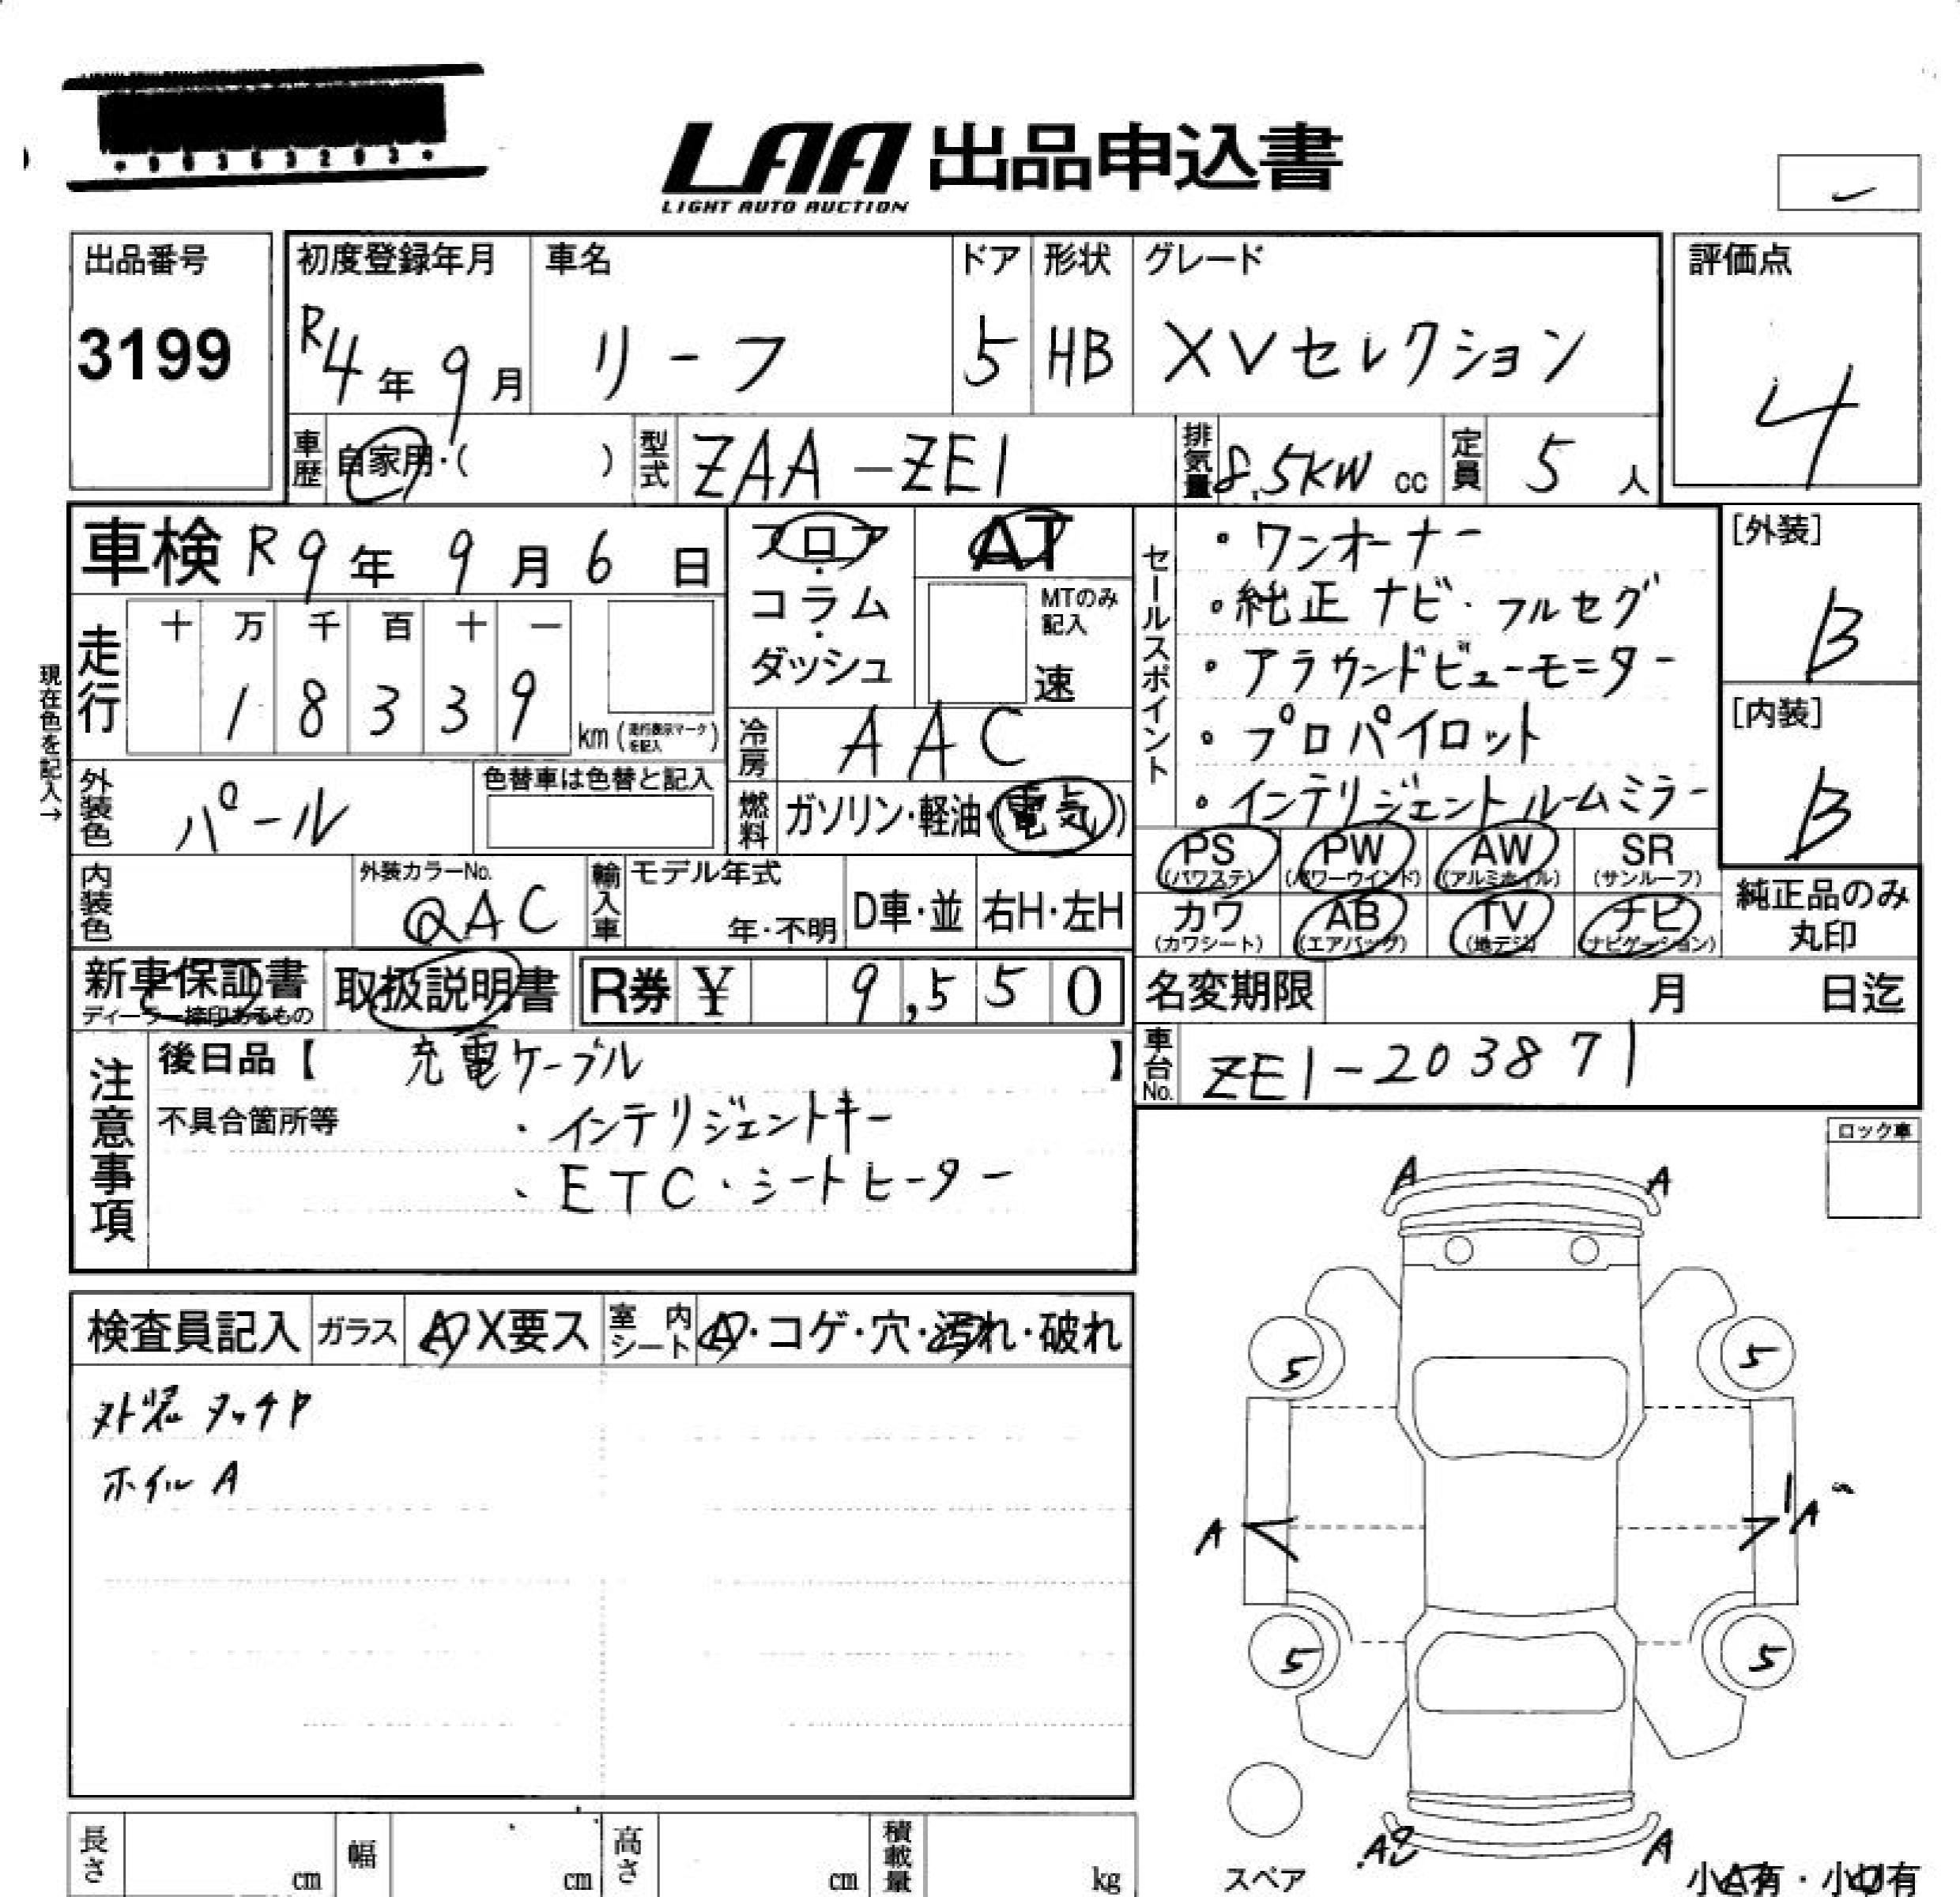 LAA 出品申込書
LIGHT AUTO AUCTION
出品番号
3199
初度登録年月
R4年9月
車名
リーフ
ドア
5
形状
HB
グレード
XVセレクション
評価点
4
車歴
自家用・( )
型式
ZAA-ZE1
排気量
8.5KW cc
定員
5人
車検 R9年9月6日
フロア・コラム・ダッシュ
AT
MTのみ記入
速
走行
十 万 千 百 十 一
1 8 3 3 9 km (走行表示マークを記入)
現在色を記入→
冷房
AAC
外装色
パール
色替車は色替と記入
燃料
ガソリン・軽油・(電気)
内装色
外装カラーNo.
QAC
輸入車
モデル年式
年・不明
D車・並
右H・左H
新車保証書
ディーラー捺印あるもの
取扱説明書
R券 ¥ 9,550
セールスポイント
・ワンオーナー
・純正ナビ・フルセグ
・アラウンドビューモニター
・プロパイロット
・インテリジェントルームミラー
[外装]
B
[内装]
B
PS (パワステ)
PW (パワーウインド)
AW (アルミホイル)
SR (サンルーフ)
カワ (カワシート)
AB (エアバッグ)
TV (地デジ)
ナビ (ナビゲーション)
純正品のみ
丸印
名変期限 月 日迄
車台No.
ZE1-203871
注意事項
後日品【 充電ケーブル 】
不具合箇所等
・インテリジェントキー
・ETC・シートヒーター
ロック車
検査員記入
ガラス
A X要ス
室内シート
A・コゲ・穴・汚れ・破れ
外装タッチP
ホイルA
A
A
5
5
A
A
5
5
A
スペア
小A有・小U有
長さ cm
幅 cm
高さ cm
積載量 kg